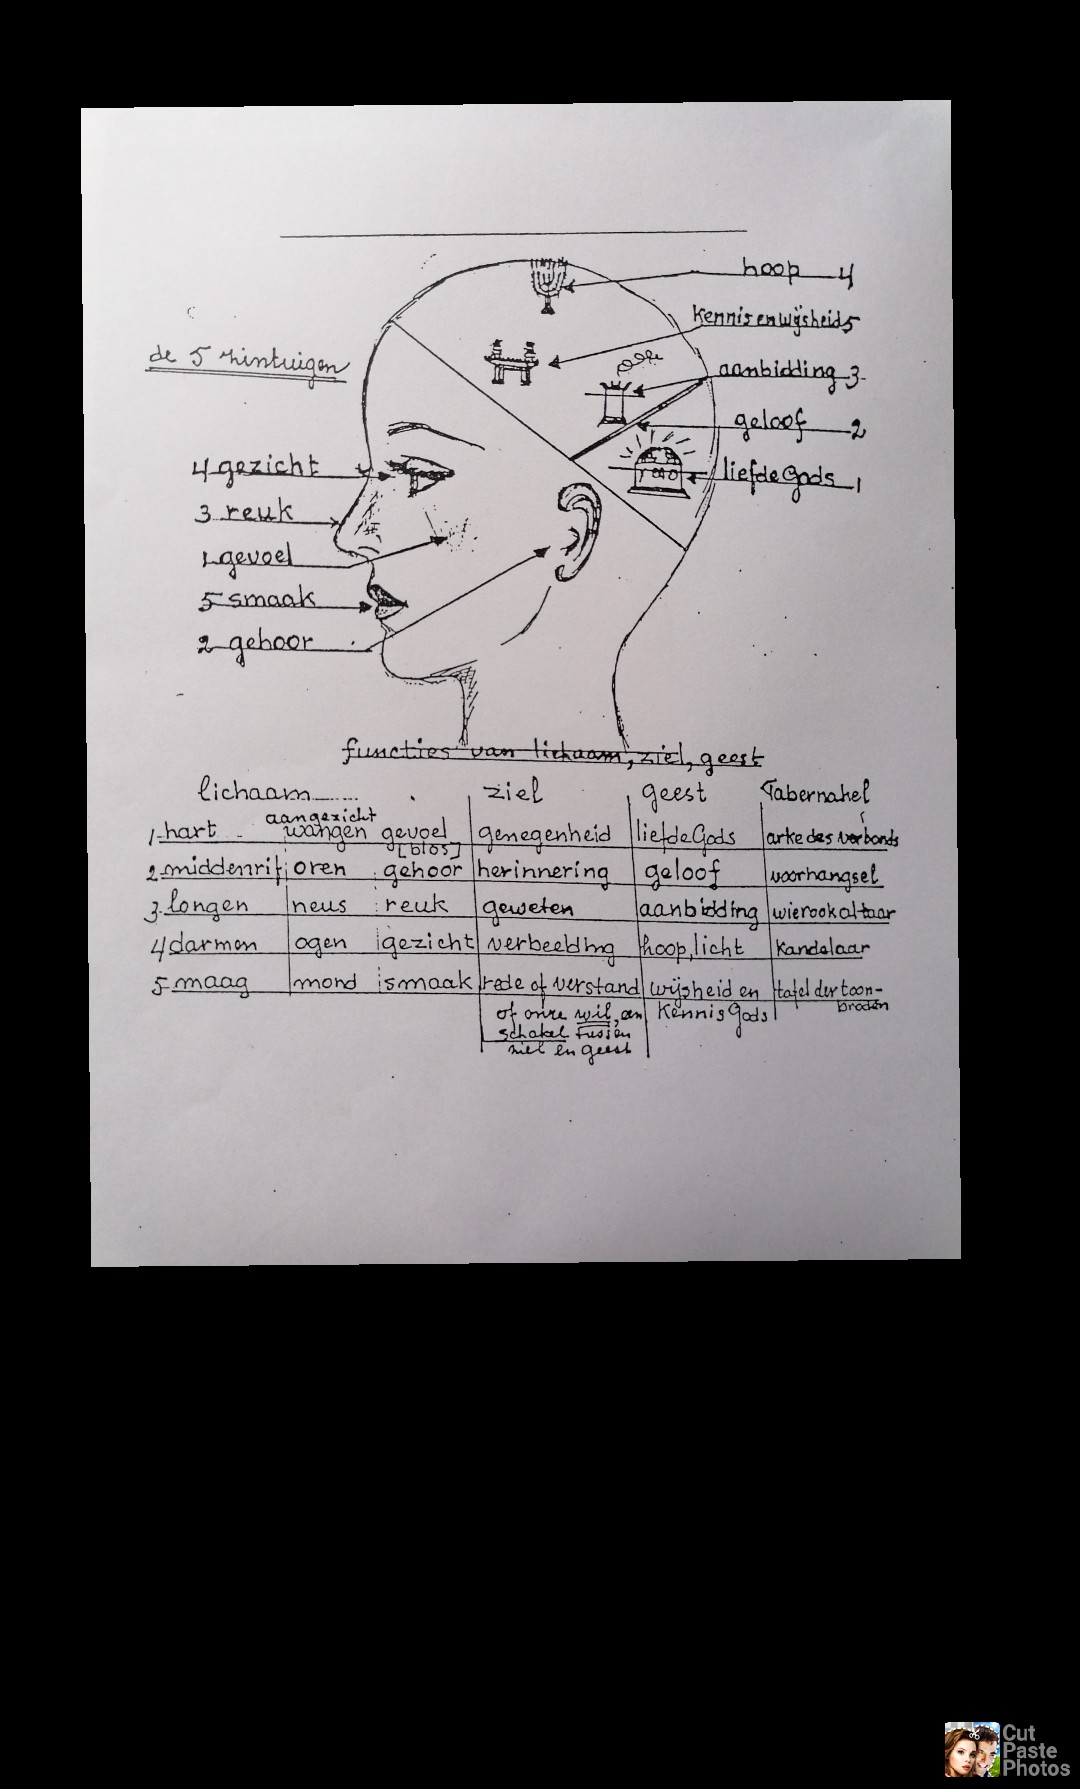 hoop 4
kennis en wijsheid 5
de 5 zintuigen
aanbidding 3
geloof 2
4 gezicht
liefde Gods 1
3 reuk
1 gevoel
5 smaak
2 gehoor
functies van lichaam, ziel, geest
lichaam ziel geest Tabernakel
aangezicht
1 hart wangen gevoel genegenheid liefde Gods arke des verbonds
[blos]
2 middenrif oren gehoor herinnering geloof voorhangsel
3 longen neus reuk geweten aanbidding wierookaltaar
4 darmen ogen gezicht verbeelding hoop, licht Kandelaar
5 maag mond smaak rede of verstand wijsheid en tafel der toon-
broden
of onze wil, een kennis Gods
schakel tussen
ziel en geest
Cut
Paste
Photos